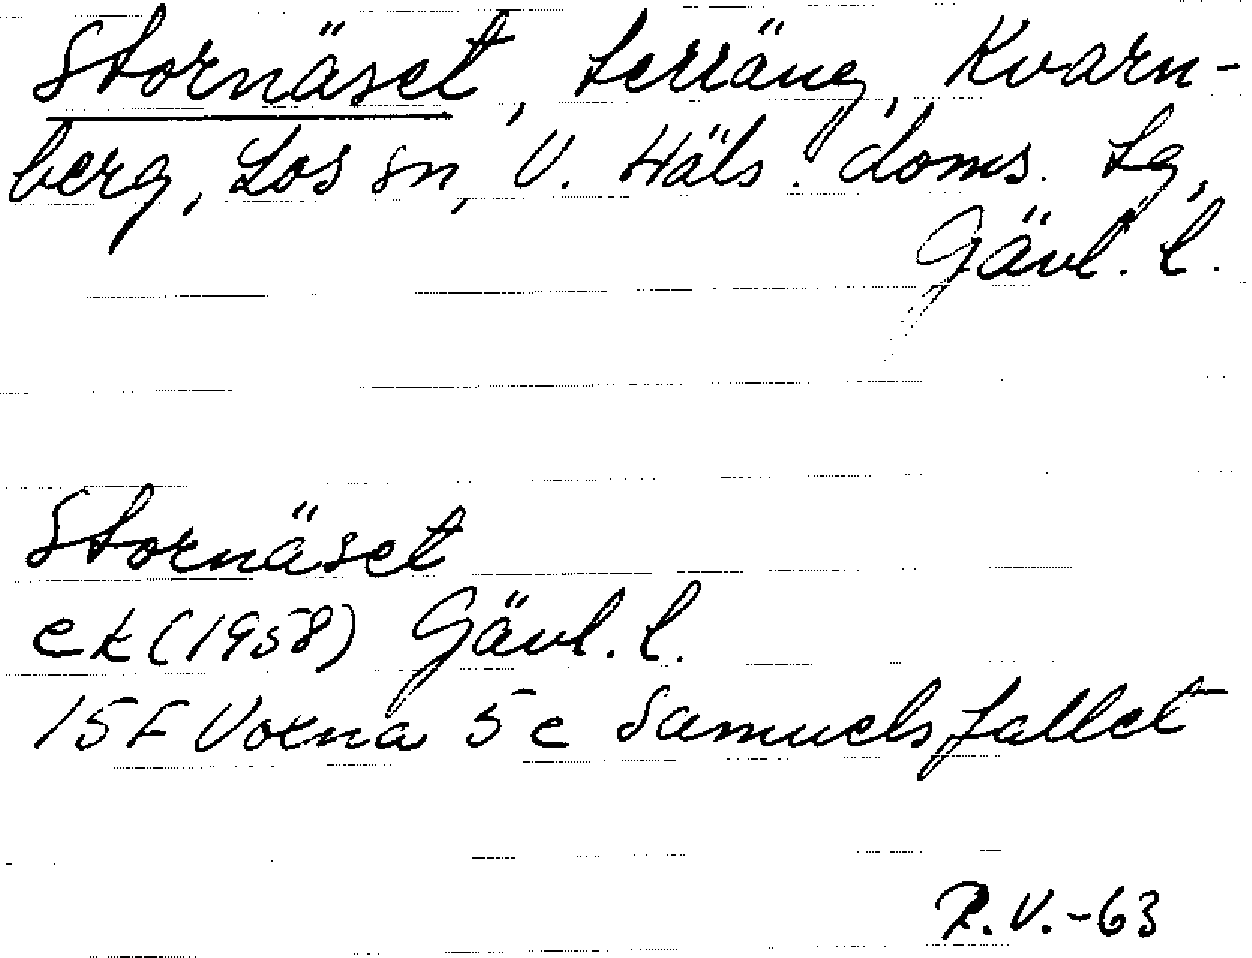 Stornäset, terräng, Kvarn-
berg, Los sn, V. Häls. doms. tg,
Gävl. l.
Stornäset
ek (1958) Gävl. l.
15F Voxna 5c Samuelsfallet
R.V.-63